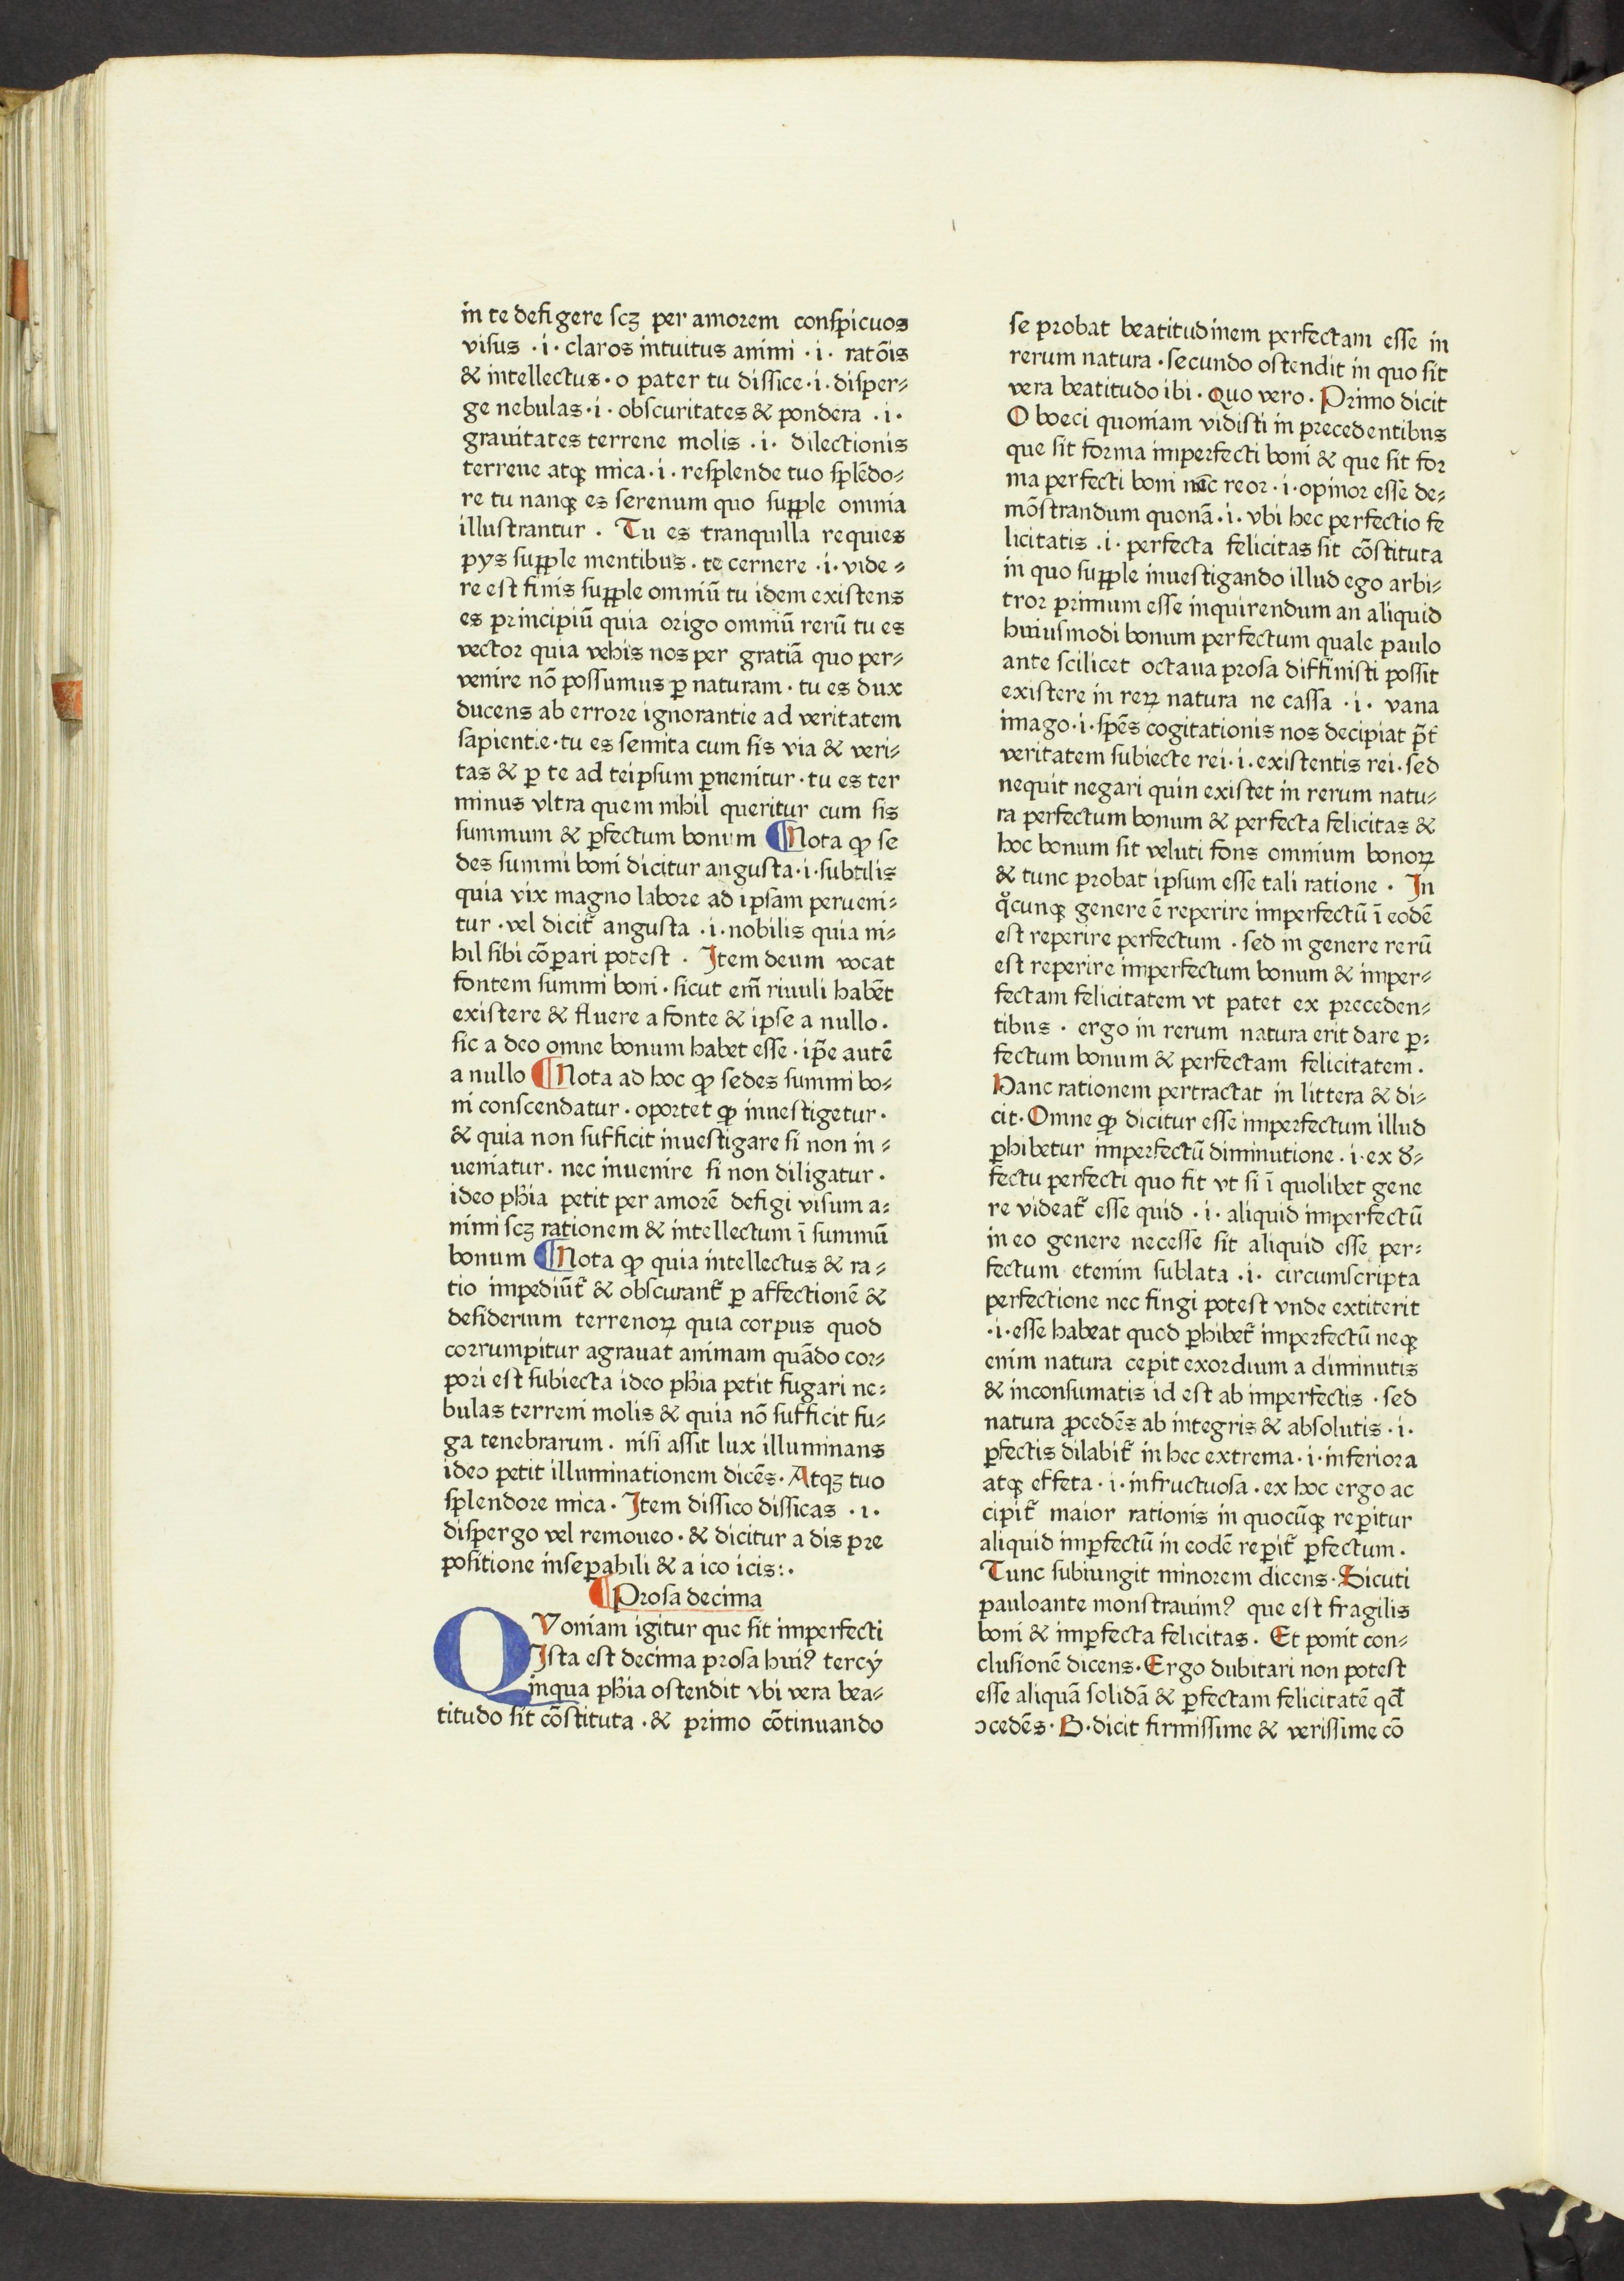 in te defigere ſcꝫ per amorem conſpicuos
viſus · i · claros intuitus animi · i · ratōis
& intellectus · o pater tu diſſice · i · diſper⸗
ge nebulas · i · obſcuritates & pondera · i ·
grauitates terrene molis · i · dilectionis
terrene atqꝫ mica · i · reſplende tuo ſplēdo⸗
re tu nanqꝫ es ſerenum quo ſupple omnia
illuſtrantur . Tu es tranquilla requies
pys ſupple mentibus · te cernere · i · vide ⸗
re eſt finis ſupple omniū tu idem exiſtens
es principiū quia origo omniū rerū tu es
vector quia vehis nos per gratiā quo per⸗
venire nō poſſumus ꝑ naturam · tu es dux
ducens ab errore ignorantie ad veritatem
ſapientie · tu es ſemita cum ſis via & veri⸗
tas & ꝑ te ad teipſum ꝑuenitur · tu es ter
minus vltra quem nihil queritur cum ſis
ſummum & ꝑfectum bonum ¶ Nota ꝙ ſe
des ſummi boni dicitur anguſta · i · ſubtilis
quia vix magno labore ad ipſam perueni⸗
tur · vel dicit̃ anguſta · i · nobilis quia ni⸗
hil ſibi cōparari poteſt . Item deum vocat
fontem ſummi boni · ſicut em̄ riuuli habēt
exiſtere & fluere a fonte & ipſe a nullo .
ſic a deo omne bonum habet eſſe · ip̄e autē
a nullo ¶ Nota ad hoc ꝙ ſedes ſummi bo⸗
ni conſcendatur · oportet ꝙ inueſtigetur ·
& quia non ſufficit inueſtigare ſi non in ⸗
ueniatur . nec inuenire ſi non diligatur .
ideo ph̄ia petit per amorē defigi viſum a⸗
nimi ſcꝫ rationem & intellectum ī ſummū
bonum ¶ Nota ꝙ quia intellectus & ra ⸗
tio impediūt̃ & obſcurant̃ ꝑ affectionē &
deſiderium terrenoꝝ quia corpus quod
corrumpitur agrauat animam quādo cor⸗
pori eſt ſubiecta ideo ph̄ia petit fugari ne⸗
bulas terreni molis & quia nō ſufficit fu⸗
ga tenebrarum . niſi aſſit lux illuminans
ideo petit illuminationem dicēs · Atqꝫ tuo
ſplendore mica · Item diſſico diſſicas · i .
diſpergo vel remoueo · & dicitur a dis pre
poſitione inſeꝑabili & a ico icis : .
¶ Proſa decima
QVoniam igitur que ſit imperfecti
Iſta eſt decima proſa hui⁹ tercÿ
inqua ph̄ia oſtendit vbi vera bea⸗
titudo ſit cōſtituta · & primo cōtinuando
ſe probat beatitudinem perfectam eſſe in
rerum natura · ſecundo oſtendit in quo ſit
vera beatitudo ibi · Quo vero · Primo dicit
O boeci quoniam vidiſti in precedentibus
que ſit forma imperfecti boni & que ſit for
ma perfecti boni nūc reor · i · opinor eſſe de⸗
mōſtrandum quonā · i · vbi hec perfectio fe
licitatis · i · perfecta felicitas ſit cōſtituta
in quo ſupple inueſtigando illud ego arbi⸗
tror primum eſſe inquirendum an aliquid
huiuſmodi bonum perfectum quale paulo
ante ſcilicet octaua proſa diffiniſti poſſit
exiſtere in reꝝ natura ne caſſa · i · vana
imago · i · ſpēs cogitationis nos decipiat p̄t̃
veritatem ſubiecte rei · i · exiſtentis rei · ſed
nequit negari quin exiſtet in rerum natu⸗
ra perfectum bonum & perfecta felicitas &
hoc bonum ſit veluti fons omnium bonoꝝ
& tunc probat ipſum eſſe tali ratione · In
qͦcunqꝫ genere ē reperire imperfectū ī eodē
eſt reperire perfectum · ſed in genere rerū
eſt reperire imperfectum bonum & imper⸗
fectam felicitatem vt patet ex preceden⸗
tibus · ergo in rerum natura erit dare ꝑ⸗
fectum bonum & perfectam felicitatem .
Hanc rationem pertractat in littera & di⸗
cit · Omne ꝙ dicitur eſſe imperfectum illud
ꝑhibetur imperfectū diminutione · i · ex d̄⸗
fectu perfecti quo fit vt ſi ī quolibet gene
re videat̃ eſſe quid · i · aliquid imperfectū
in eo genere neceſſe ſit aliquid eſſe per⸗
fectum etenim ſublata · i · circumſcripta
perfectione nec fingi poteſt vnde extiterit
· i · eſſe habeat quod ꝑhibet̃ imperfectū neqꝫ
enim natura cepit exordium a diminutis
& inconſumatis id eſt ab imperfectis · ſed
natura ꝓcedēs ab integris & abſolutis · i ·
ꝑfectis dilabit̃ in hec extrema · i · inferiora
atqꝫ effeta · i · infructuoſa · ex hoc ergo ac
cipit̃ maior rationis in quocūqꝫ reperitur
aliquid imꝑfectū in eodē reꝑit̃ ꝑfectum .
Tunc ſubiungit minorem dicens · Sicuti
pauloante monſtrauim⁹ que eſt fragilis
boni & imꝑfecta felicitas . Et ponit con⸗
cluſionē dicens · Ergo dubitari non poteſt
eſſe aliquā ſolidā & ꝑfectam felicitatē qd̄
ↄcedēs · B · dicit firmiſſime & veriſſime cō